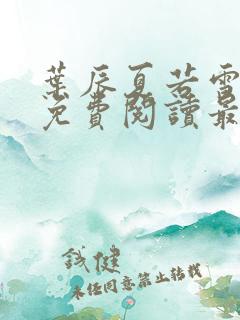 葉辰夏若雪
免費閱讀最
誠健
未经同意禁止转载